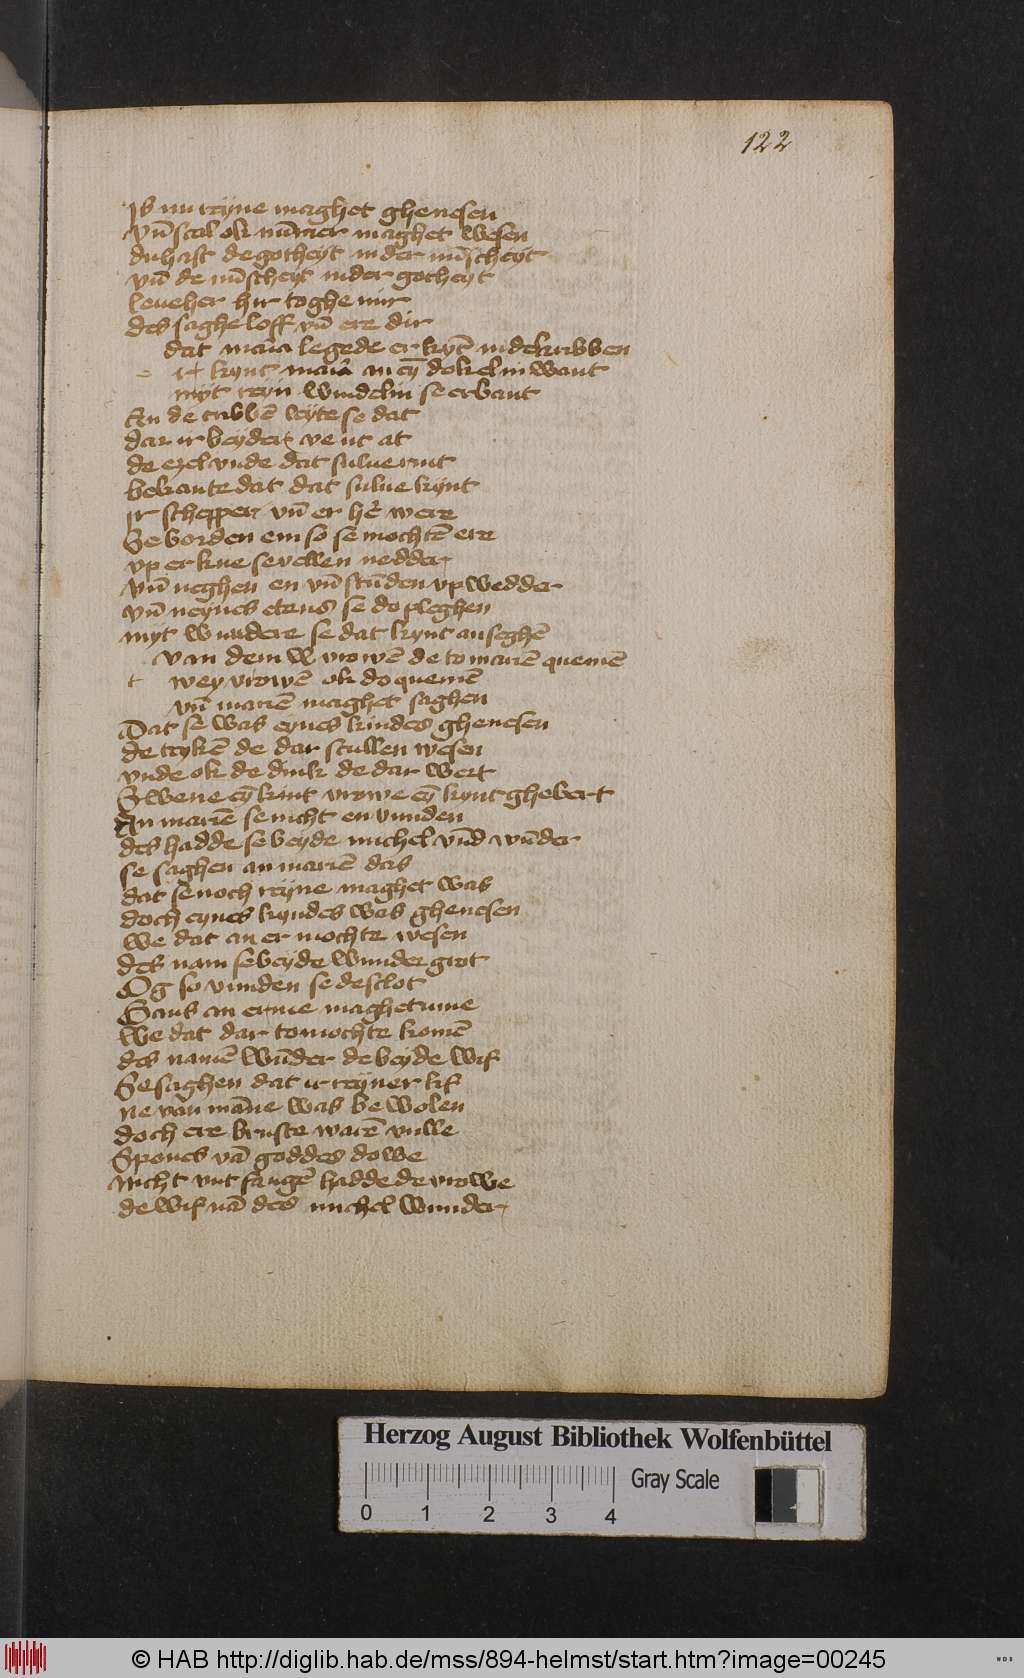 122
Js nu reyne maghet ghenesen
vn̄ scal ok nūmer maghet wesen
du hast de gotheyt in der mīscheyt
vn̄ de mīscheyt in der gotheyt
leue her hir to ghe mir
des saghe loff vn̄ ere dir
dat maria legede er kyt̄ in de kribben
kynt maria an ey̅ dokelin want
myt reyn windelin se erbant
An de cribbē leyte se dat
dar ir beyder ve ut at
de ezel vnde dat sulue rint
bekante dat dat sulue kynt
Jr schepper vn̄ er h̄e were
Se borden em so se mochtē ere
vp er knie se vellen nedder
vn̄ neghen en vn̄ stūden vp wedder
vn̄ neynes etens se do pleghen
myt wundere se dat kynt an seghē
van dem vrowē de to mariē quemē
wey vrowē ok do quemē
vn̄ mariē maghet saghen
Dat se was eynes kindes ghenesen
de teykē de dar scullen wesen
vnde ok de dink de dar wert
Swene ey̅ kint vrowe ey̅ kynt ghebert
An mariē se nicht en vunden
des hadde se beyde michel vn̄d wūder
se saghen an mariē das
dat se noch reyne maghet was
doch eynes kyndes was ghenesen
we dat an er mochte wesen
des nam se beyde wunder grot
Og so vunden se des slot
Gans an erme maghetume
we dat dar to mochte komē
des namē wūder de beyde wif
Se saghen dat ir reyner lif
ne van māne was bewolen
doch ere bruste warē vulle
Spones vā goddes dowe
nicht vntfangē hadde de vrowe
de wif nā des michel wunder
Herzog August Bibliothek Wolfenbüttel
Gray Scale
0 1 2 3 4
© HAB http://diglib.hab.de/mss/894-helmst/start.htm?image=00245